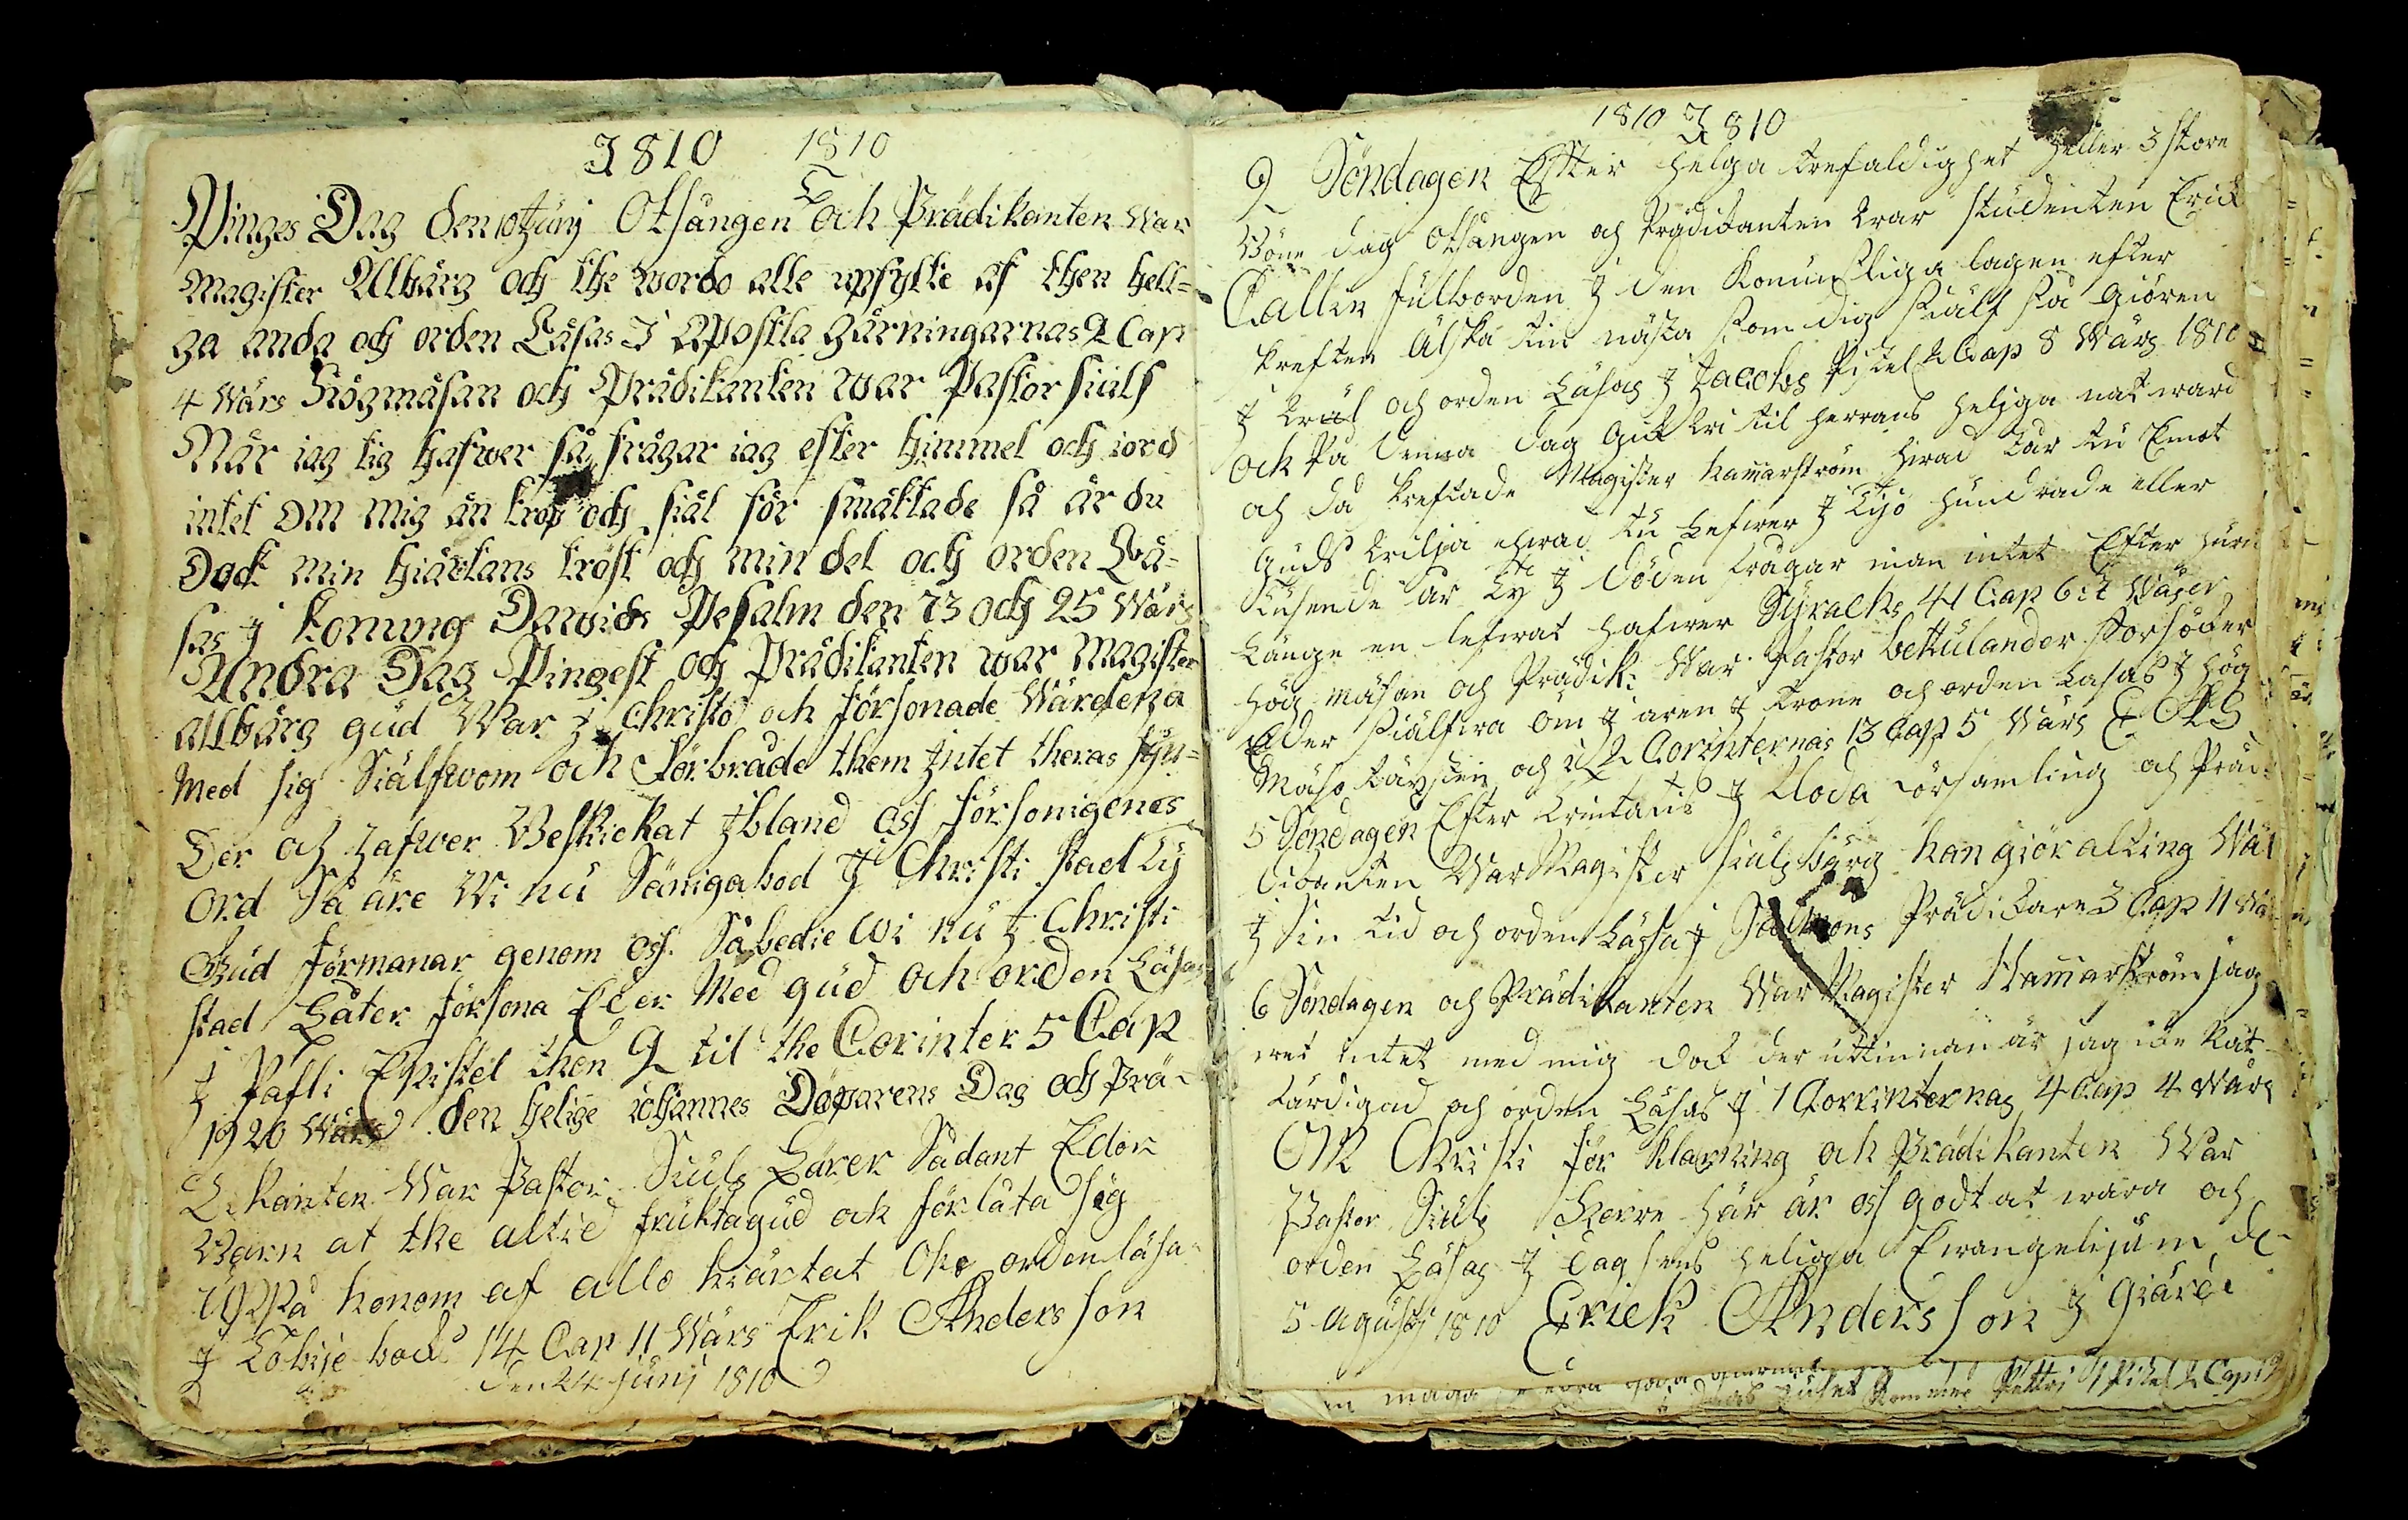 1810 1810
Pinges Dag den 10 Junj Otsången och Prädikanten War
Magister Allbärg och the wordo alle upfyllte af then hell=
ga anda och orden Läsas I Apostla gärningarnas 2 Cap
4 Wärs Högmäsan och Prädikanten war Pastor siuls
När iag tig hafwer så frågar iag efter himmel och iord
intet om mig än krop och siäl för smäktade så är du
Dock min hiärtans tröst och min del och orden Lä-
sas j konung Dawids Pesalm den 73 och 25 Wärs
Andra Dag Pingest och Prädikanten war Magister
Allbärg gud War j Christo och försonade Wärdena
Med sig Siälfwom och förbrade them jntet theras syn=
der och hafwer Beskickat jbland oss försonigenes
Ord Så äre Wi nu Sänigabod J Christi stad ty
Gud förmanar genom oss Så bedie Wi nu J Christi
stad Låter försona Eder Med gud och orden Läsas
J Pafli Epistel then 2 til the Corinter 5 Cap
19 20 Wärs den helige iohannes Döparens Dag och Prä-
dikanten War Pastor Siuls Lärer Sådant Edor
Barn at the altid frukta gud och förlåta sig
Uppå honom af allo hiärtat Och orden läsa
J Tobije bock 14 Cap 11 Wärs Erik Andersson
den 24 junj 1810
1810 1810
2 Söndagen Efter helga trefaldighet heller 3 store
Böne dag Otsången och Prädikanten War studenten Erick
Callin fulborden J den Konunsliga lagen efter
skreften Älska tin nästa som dig siälf så giören
J Wäl och orden Läsas J Jacobs Pistel 2 Cap 8 Wärs 1810
Och På denna dag Gick Wi til herrans heliga natward
och da skreftade Magister hamarström hwad har tu Emot
Guds Wilja ehwad tu Lefwer J Tijo hundrade eller
tusende år Ty J döden frågar man intet Efter huru
Länge en lefwat hafwer Syrachs 41 Cap 6:t Wäser
hög mäsan och Prädik: War Pastor bettulander försöker
Eder siälfwa om J aren J trone och orden Läsas J hög
Mäso täxsten och i 2 Corinternas 13 Cap 5 Wärs
5 Söndagen Efter trinitatis J Floda församling och Prädi
dikanten War Magister siulsbärg han giör alting Wäl
J Sin tid och orden Läsas J Salomons Prädikare 3 Cap 11 Wä
6 Söndagen och Prädikanten War Magister Hamarström jag
wet intet med mig dock der uttinnan är jag icke Rät
färdigad och orden Läsas J 1 Corrinternas 4 Cap 4 Wärs
Christi för klarning och Prädikanten War
Pastor Siuls Herre här är oss godt at wara och
orden Läsas J dagsens heliga Ewangelijum de
5 Agusti 1810 Erick Andersson J
Pettri Pistel 2 Cap